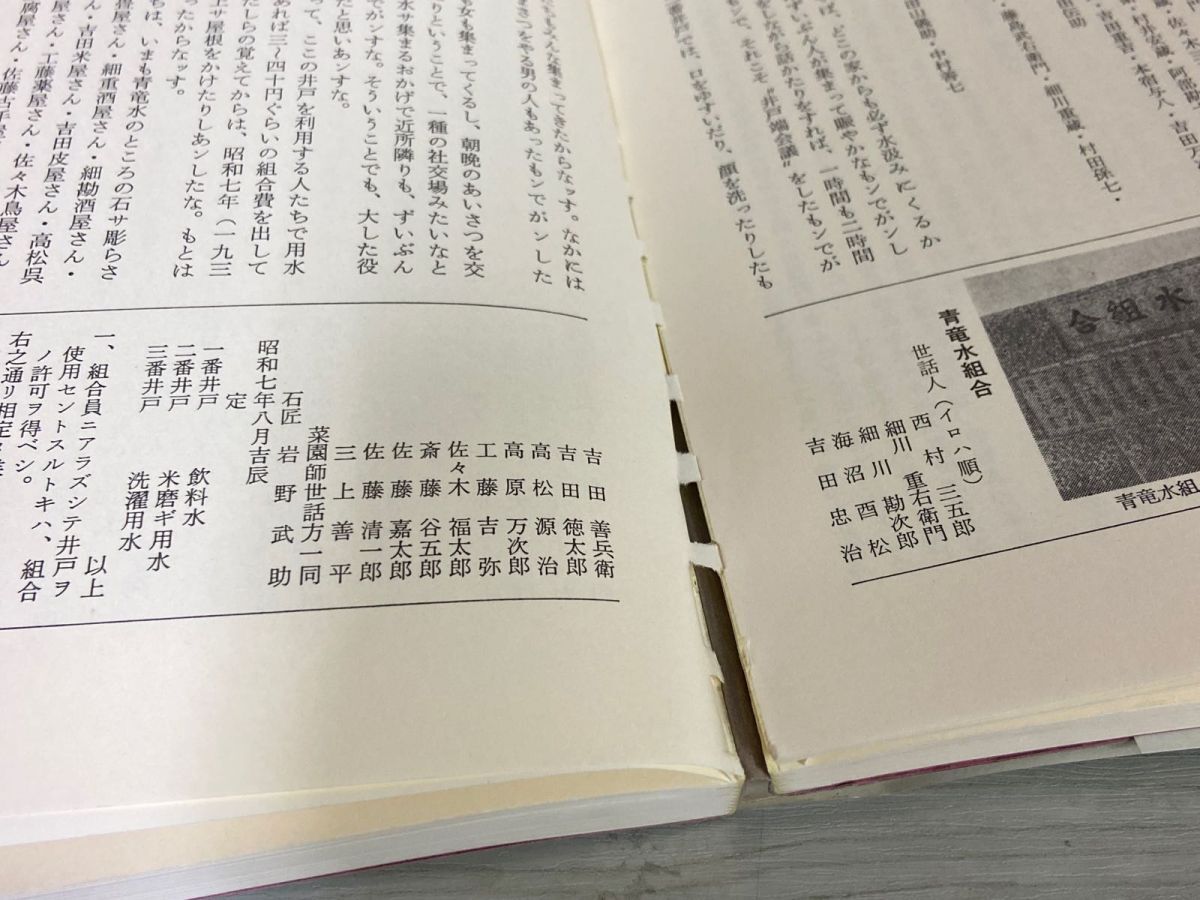 佐々木
・阿部勘
・吉田乃
・吉田重吉・本宿与八
・藤徳武右衛門・細川重蔵・村田孫七・
中村善七
ば、どこの家からも必ず水汲みにくるか
ずいぶん人が集まって賑やかなもンでがンし
をしながら話かたりをすれば、一時間も二時間
モンで、それこそ“井戸端会議”をしたもンでが
では、口をゆすいだり、顔を洗ったりしたも
水組合
青竜水組
青竜水組合
世話人(イロハ順)
西村三五郎
細川重右衛門
細川勘次郎
海沼酉松
吉田忠治
たもよんな集まってきたからなッす。なかには
なかも集まってくるし、朝晩のあいさつを交
まき〟をやる男の人もあったもンでがンした
りということで、一種の社交場みたいなと
水サ集まるおかげで近所隣りも、ずいぶん
でがンすな。そういうことでも、大した役
たと思いあンすな。
って、ここの井戸を利用する人たちで用水
あれば三〜四十円ぐらいの組合費を出して
たしらの覚えてからは、昭和七年(一九三
上サ屋根をかけたりしあンしたな。もとは
ったからなッす。
ちは、いまも青竜水のところの石サ彫らさ
畳屋さん・細重酒屋さん・細勘酒屋さん・
ん・吉田米屋さん・吉田皮屋さん・高松呉
屋さん・工藤薬屋さん・佐々木鳥屋さん
腐屋さん・佐藤古手屋
吉田善兵衛
吉田徳太郎
高松源治
高原万次郎
工藤吉弥
佐々木福太郎
斎藤谷五郎
佐藤嘉太郎
佐藤清一郎
三上善平
菜園師世話方一同
石匠 岩野武助
昭和七年八月吉辰
定
一番井戸 飲料水
二番井戸 米磨ギ用水
三番井戸 洗濯用水
以上
一、組合員ニアラズシテ井戸ヲ
使用セントスルトキハ、組合
ノ許可ヲ得ベシ。
右之通リ相定